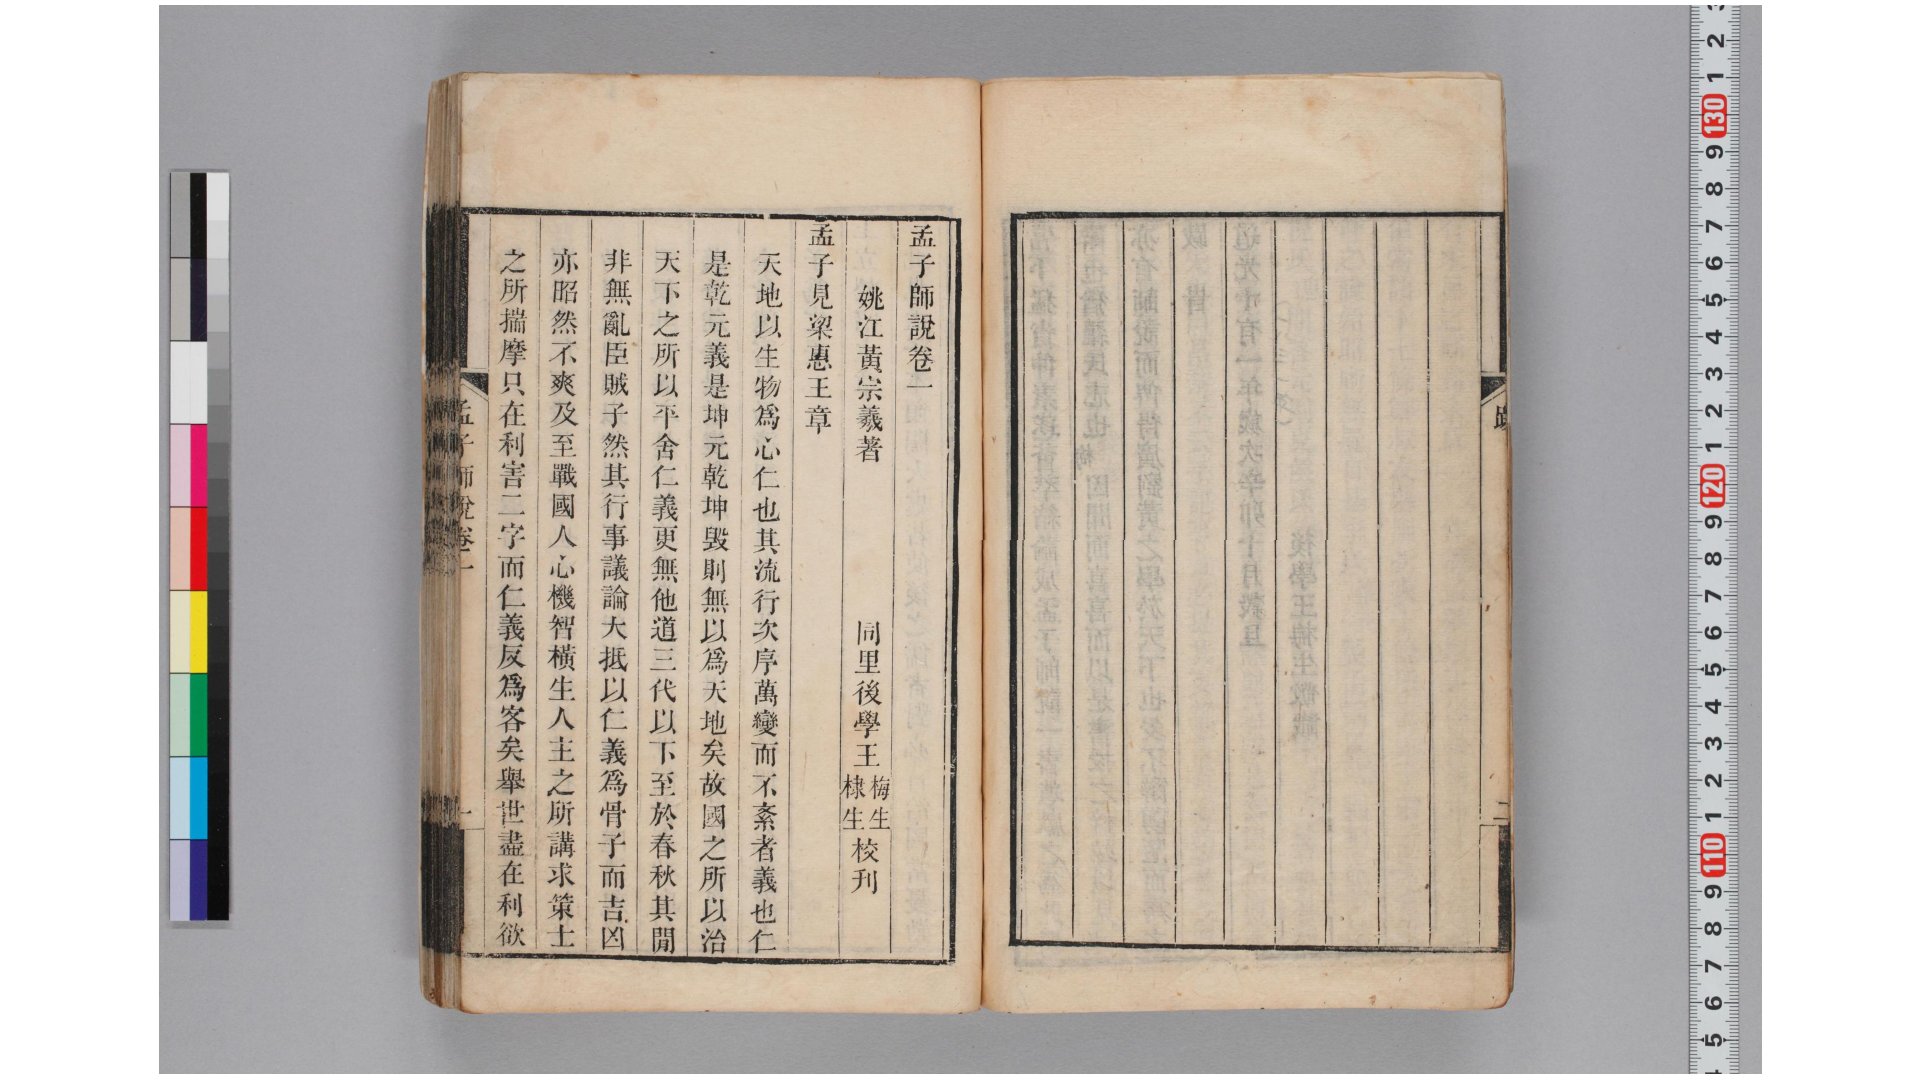 孟子師說卷一
姚江黃宗羲著 同里後學王梅生棣生校刊
孟子見梁惠王章
天地以生物爲心仁也其流行次序萬變而不紊者義也仁
是乾元義是坤元乾坤毀則無以爲天地矣故國之所以治
天下之所以平舍仁義更無他道三代以下至於春秋其閒
非無亂臣賊子然其行事議論大抵以仁義爲骨子而吉凶
亦昭然不爽及至戰國人心機智橫生人主之所講求策士
之所揣摩只在利害二字而仁義反爲客矣舉世盡在利欲
孟子師說卷一
一
二
3
2
1
130
9
8
7
6
5
4
3
2
1
120
9
8
7
6
5
4
3
2
1
110
9
8
7
6
5